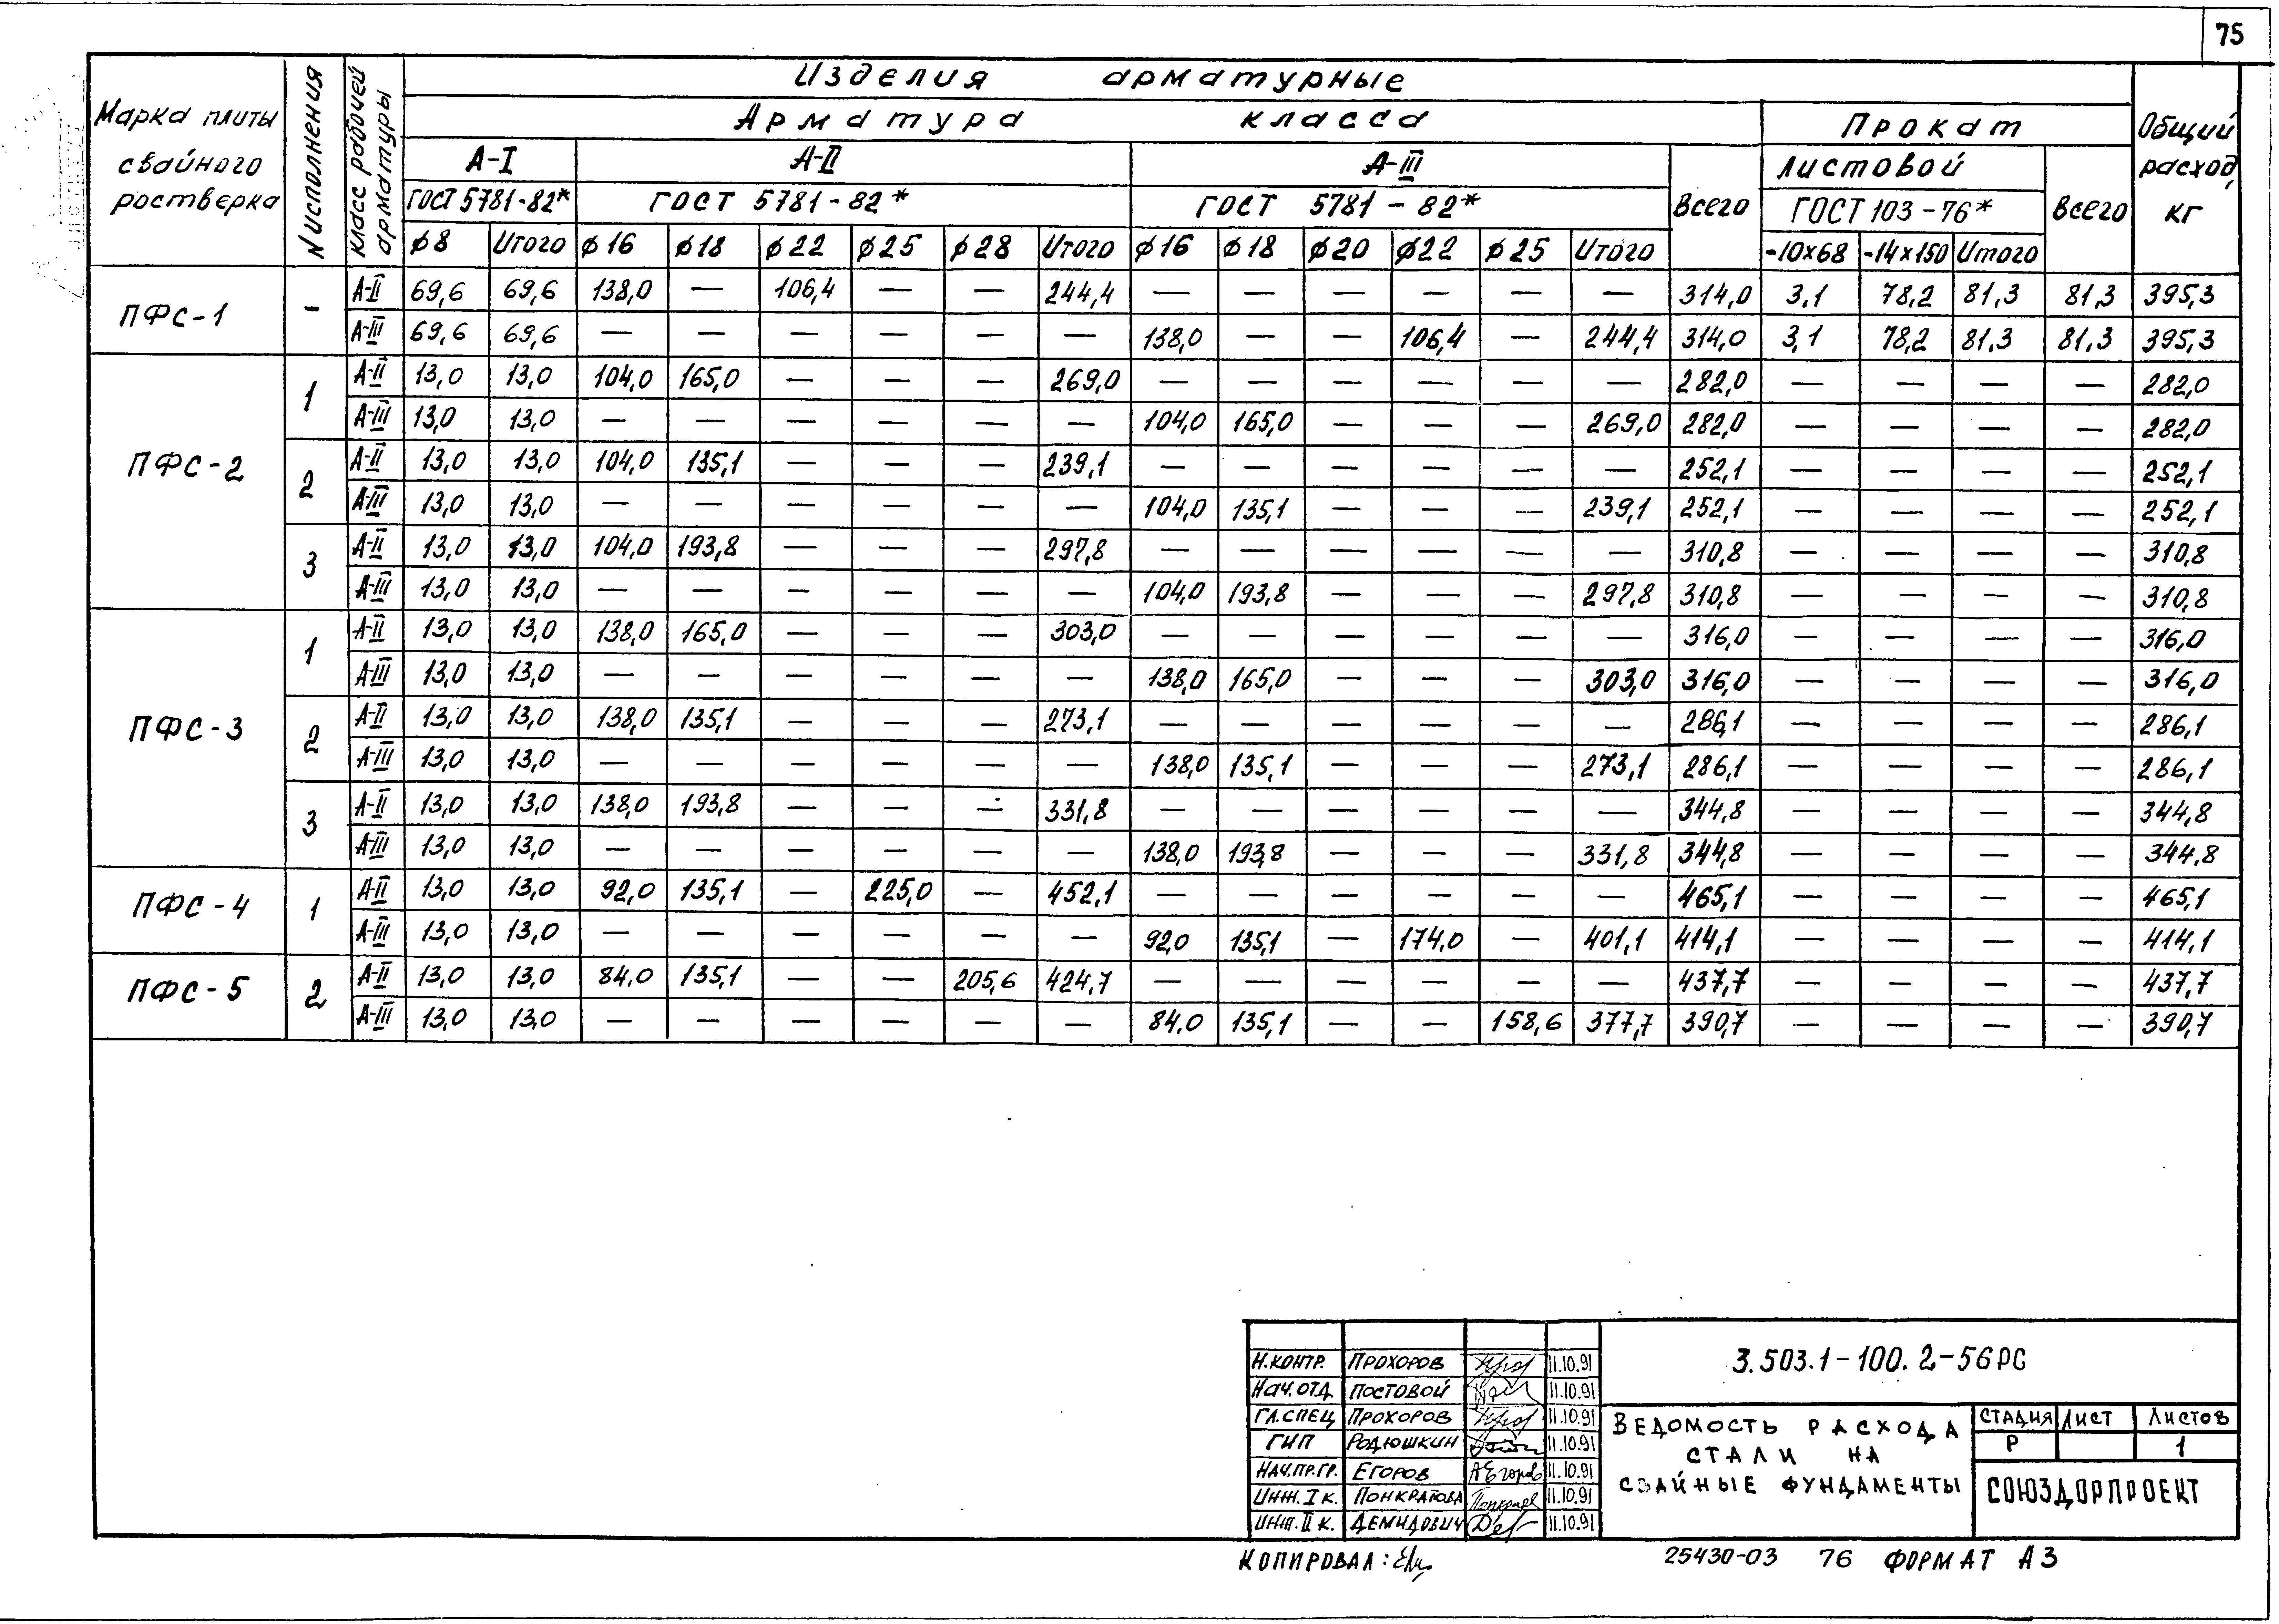 75
Изделия арматурные
Марка плиты свайного ростверка
N исполнения
Класс рабочей арматуры
Арматура класса
Прокат
Общий расход, кг
А-I А-II А-III Всего листовой Всего
ГОСТ 5781-82* ГОСТ 5781-82* ГОСТ 5781-82* ГОСТ 103-76*
ϕ8 Итого ϕ16 ϕ18 ϕ22 ϕ25 ϕ28 Итого ϕ16 ϕ18 ϕ20 ϕ22 ϕ25 Итого -10×68 -14×150 Итого
ПФС-1 – А-II 69,6 69,6 138,0 — 106,4 — — 244,4 — — — — — — 314,0 3,1 78,2 81,3 81,3 395,3
А-III 69,6 69,6 — — — — — — 138,0 — — 106,4 — 244,4 314,0 3,1 78,2 81,3 81,3 395,3
ПФС-2 1 А-II 13,0 13,0 104,0 165,0 — — — 269,0 — — — — — — 282,0 — — — — 282,0
А-III 13,0 13,0 — — — — — — 104,0 165,0 — — — 269,0 282,0 — — — — 282,0
2 А-II 13,0 13,0 104,0 135,1 — — — 239,1 — — — — — — 252,1 — — — — 252,1
А-III 13,0 13,0 — — — — — — 104,0 135,1 — — — 239,1 252,1 — — — — 252,1
3 А-II 13,0 13,0 104,0 193,8 — — — 297,8 — — — — — — 310,8 — — — — 310,8
А-III 13,0 13,0 — — — — — — 104,0 193,8 — — — 297,8 310,8 — — — — 310,8
ПФС-3 1 А-II 13,0 13,0 138,0 165,0 — — — 303,0 — — — — — — 316,0 — — — — 316,0
А-III 13,0 13,0 — — — — — — 138,0 165,0 — — — 303,0 316,0 — — — — 316,0
2 А-II 13,0 13,0 138,0 135,1 — — — 273,1 — — — — — — 286,1 — — — — 286,1
А-III 13,0 13,0 — — — — — — 138,0 135,1 — — — 273,1 286,1 — — — — 286,1
3 А-II 13,0 13,0 138,0 193,8 — — — 331,8 — — — — — — 344,8 — — — — 344,8
А-III 13,0 13,0 — — — — — — 138,0 193,8 — — — 331,8 344,8 — — — — 344,8
ПФС-4 1 А-II 13,0 13,0 92,0 135,1 — 225,0 — 452,1 — — — — — — 465,1 — — — — 465,1
А-III 13,0 13,0 — — — — — — 92,0 135,1 — 174,0 — 401,1 414,1 — — — — 414,1
ПФС-5 2 А-II 13,0 13,0 84,0 135,1 — — 205,6 424,7 — — — — — — 437,7 — — — — 437,7
А-III 13,0 13,0 — — — — — — 84,0 135,1 — — 158,6 377,7 390,7 — — — — 390,7
Н.КОНТР. ПРОХОРОВ 11.10.91
НАЧ.ОТД ПОСТОВОЙ 11.10.91
ГЛ.СПЕЦ ПРОХОРОВ 11.10.91
ГИП РОДЮШКИН 11.10.91
НАЧ.ПР.ГР. ЕГОРОВ 11.10.91
ИНЖ. I К. ПОНКРАТОВА 11.10.91
ИНЖ. II К. ДЕМИДОВИЧ 11.10.91
3.503.1-100.2-56РС
ВЕДОМОСТЬ РАСХОДА
СТАЛИ НА
СВАЙНЫЕ ФУНДАМЕНТЫ
СТАДИЯ ЛИСТ ЛИСТОВ
Р 1
СОЮЗДОРПРОЕКТ
КОПИРОВАЛ:
25430-03 76 ФОРМАТ А3